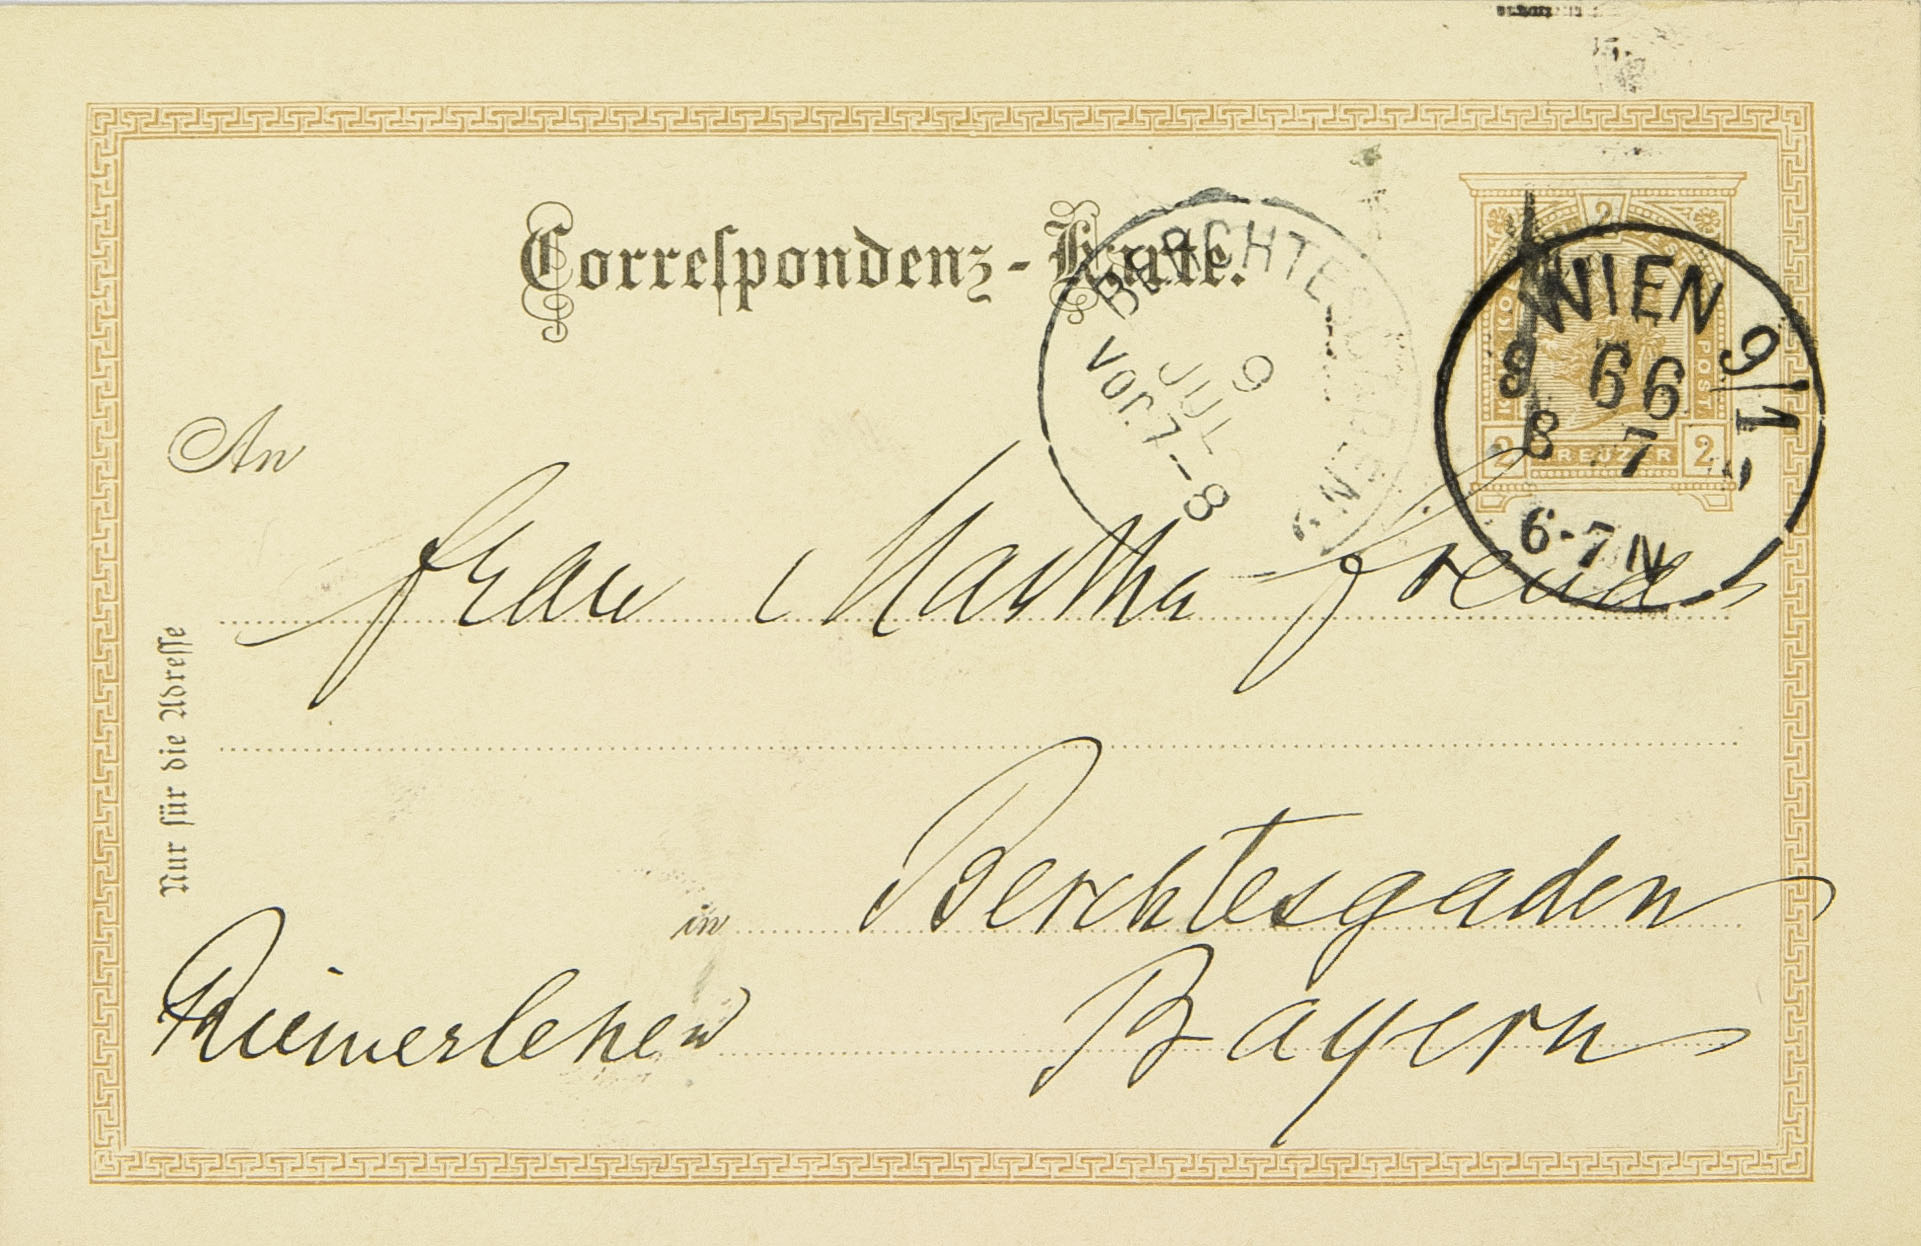 Correspondenz-Karte.
2
WIEN 9/1
66
8 7
6-7N
2 KREUZER 2
POST
BERCHTESGADEN
9
JUL
Vor. 7-8
An
Frau Martha Freud
in Berchtesgaden
Riemerlehen Bayern
Nur für die Adresse